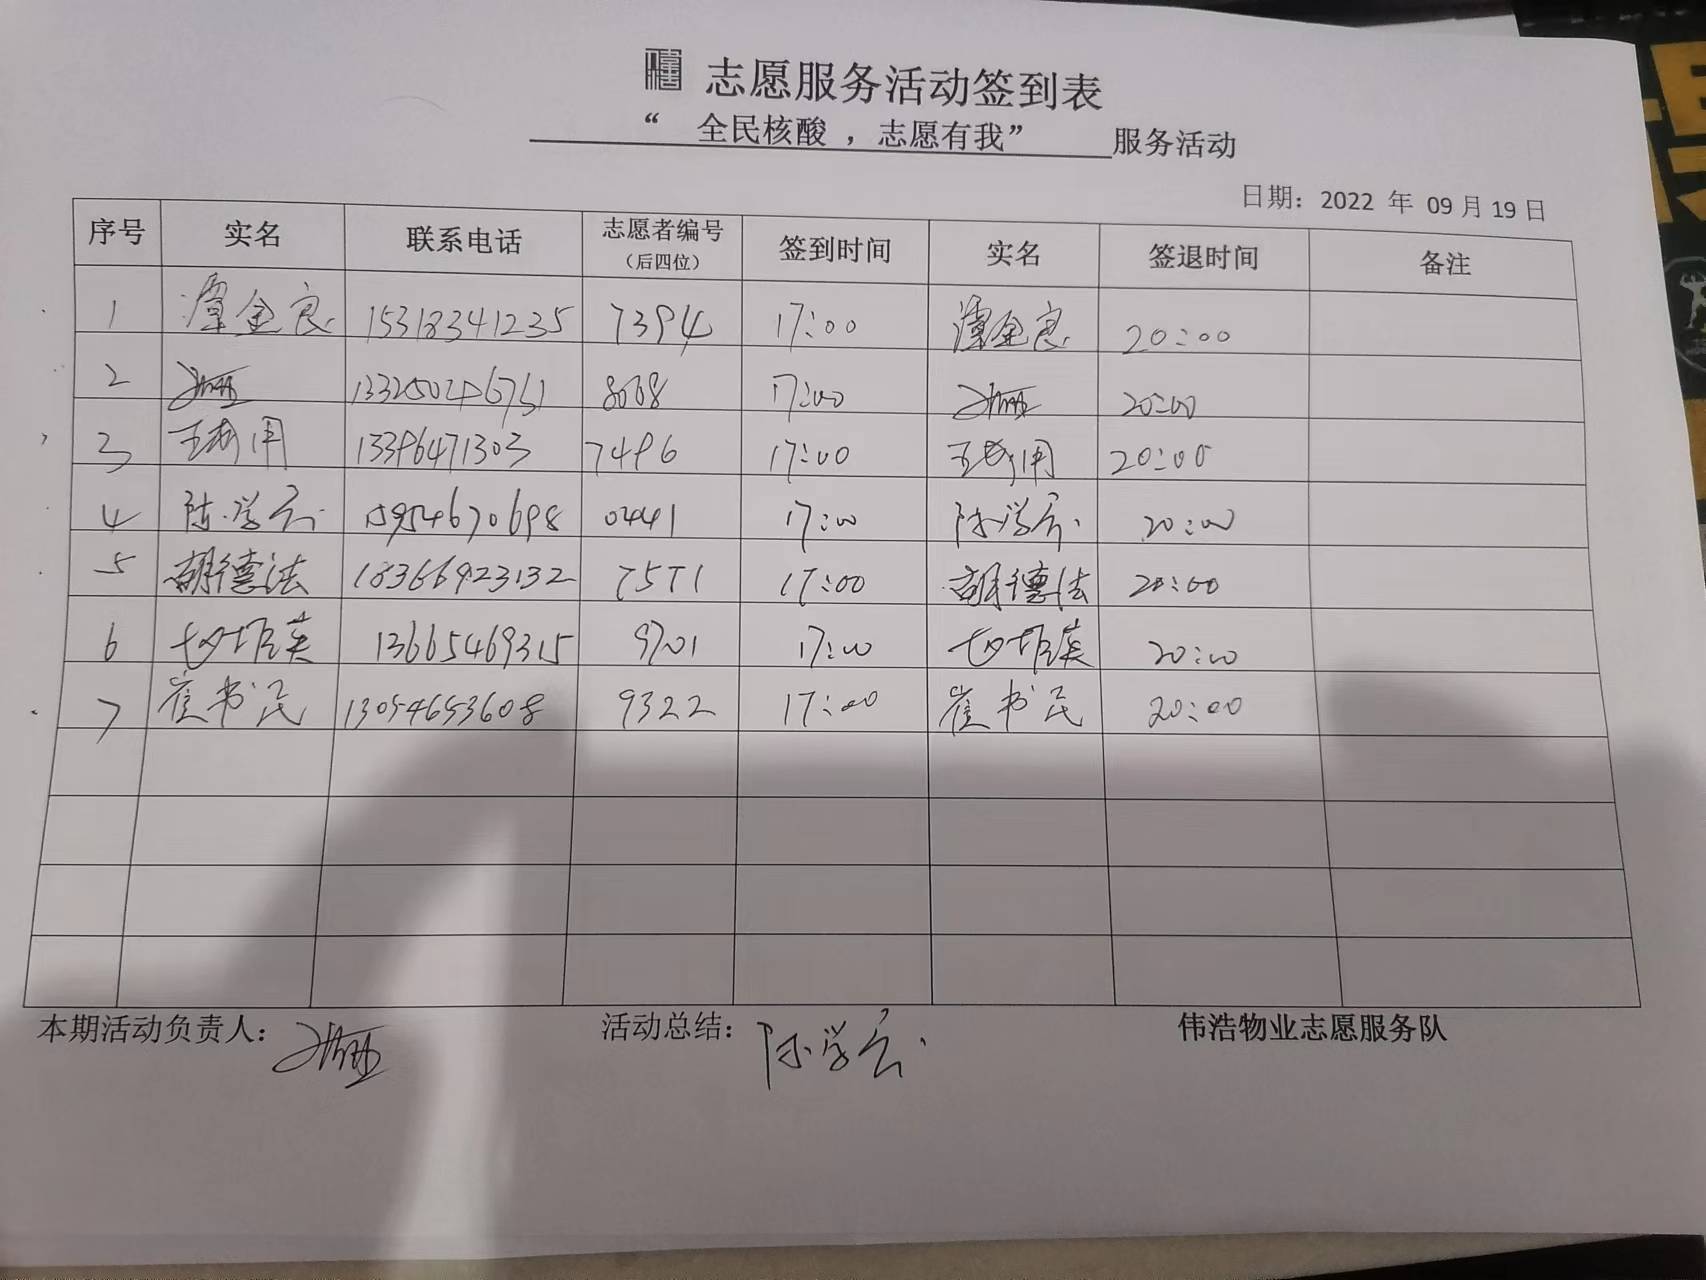 志愿服务活动签到表
“ 全民核酸 ，志愿有我” 服务活动
日期： 2022 年 09月19日
序号 实名 联系电话 志愿者编号（后四位） 签到时间 实名 签退时间 备注
1 潭金良 15318341235 7394 17:00 潭金良 20:00
2 17:00 20:00
3 13396471303 7496 17:00 20:00
4 陈学云 15954670698 0441 17:00 陈学云 20:00
5 胡德法 18366923132 7571 17:00 胡德法 20:00
6 13665469315 9701 17:00 20:00
7 崔书民 13054653608 9322 17:00 崔书民 20:00
本期活动负责人： 活动总结： 陈学云 伟浩物业志愿服务队